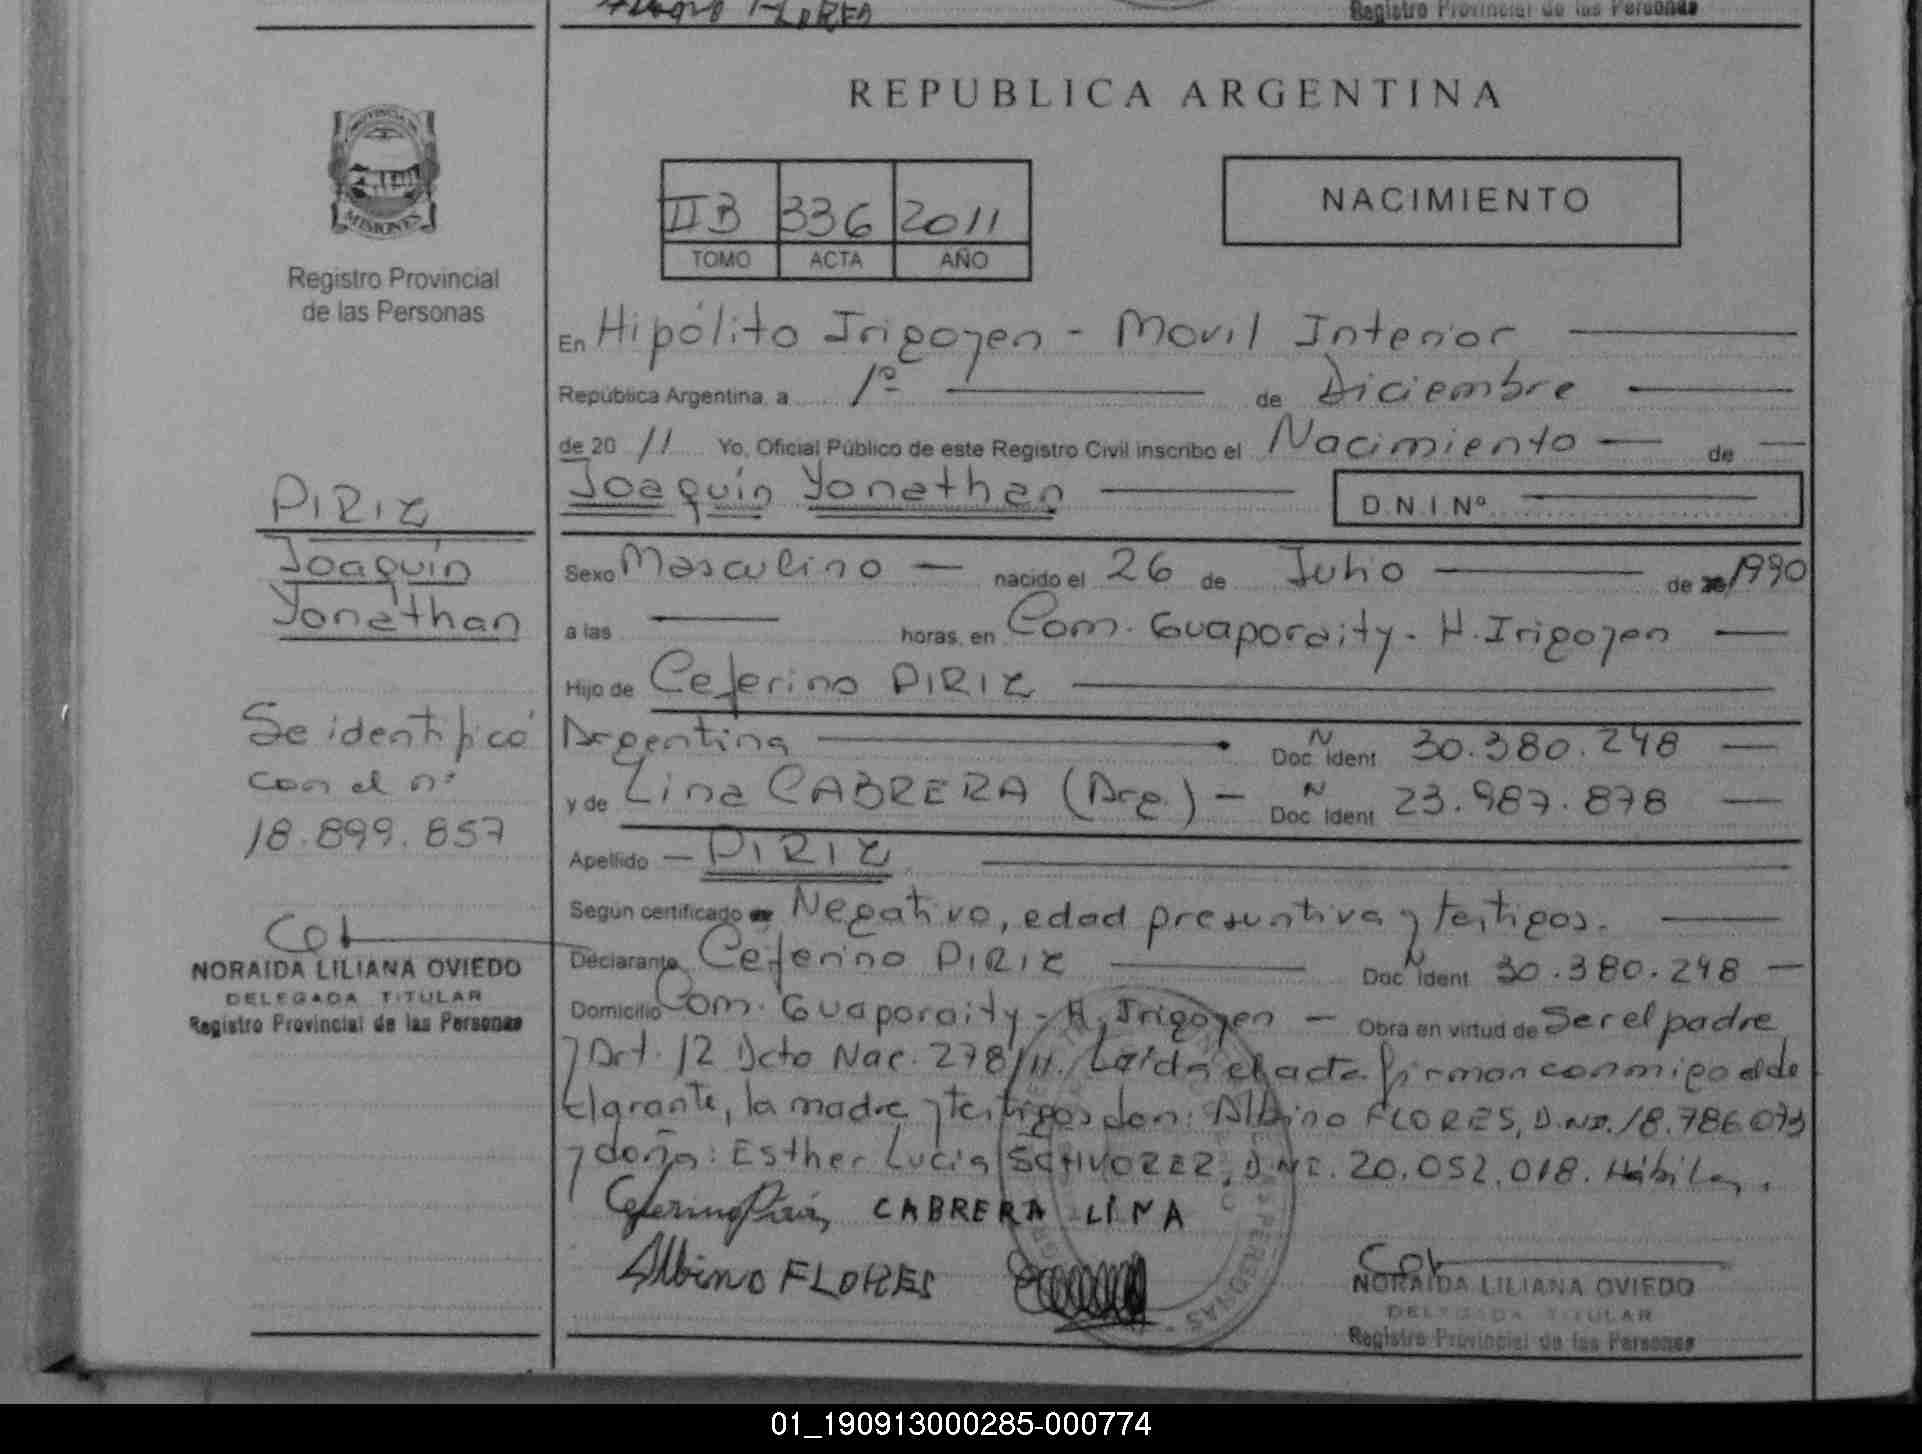 Albino FLORES
Registro Provincial de las Personas
REPUBLICA ARGENTINA
PROVINCIA DE
MISIONES
Registro Provincial
de las Personas
II B 336 2011
TOMO ACTA AÑO
NACIMIENTO
En Hipólito Irigoyen - Movil Interior
República Argentina, a 1º de Diciembre
de 20 11 Yo, Oficial Público de este Registro Civil inscribo el Nacimiento de
Joaquín Yonathan D.N.I.Nº
PIRIZ
Joaquín
Yonathan
Sexo Masculino nacido el 26 de Julio de 1990
a las horas, en Com. Guaporaity - H. Irigoyen
Hijo de Ceferino PIRIZ
Argentina Doc. Ident. N 30.380.248
y de Lina CABRERA (Arg.) - Doc. Ident. N 23.987.878
Se identificó
con el nº
18.899.857
Apellido PIRIZ
Según certificado Negativo, edad presuntiva y testigos.
Declarante Ceferino PIRIZ Doc. Ident. N 30.380.248
Domicilio Com. Guaporaity - H. Irigoyen - Obra en virtud de Ser el padre
y Art. 12 Dcto Nac. 278/11. Leída el acta firman conmigo el de
clarante, la madre y testigos don: Albino FLORES, D.N.I. 18.786.073
y doña: Esther Lucia SCHVOREZ, D.N.I. 20.052.018. Hábiles.
Ceferino Piriz CABRERA LINA
Albino FLORES
NORAIDA LILIANA OVIEDO
DELEGADA TITULAR
Registro Provincial de las Personas
NORAIDA LILIANA OVIEDO
DELEGADA TITULAR
Registro Provincial de las Personas
01_190913000285-000774